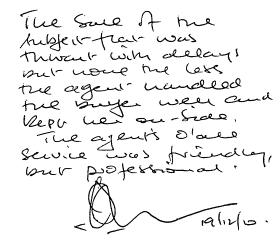 The Sale of the
subject flat was
thwart with delays
but none the less
the agent handled
the buyer well and
kept her on-side.
The agent's
service was friendly,
but professional.
19/12/10.